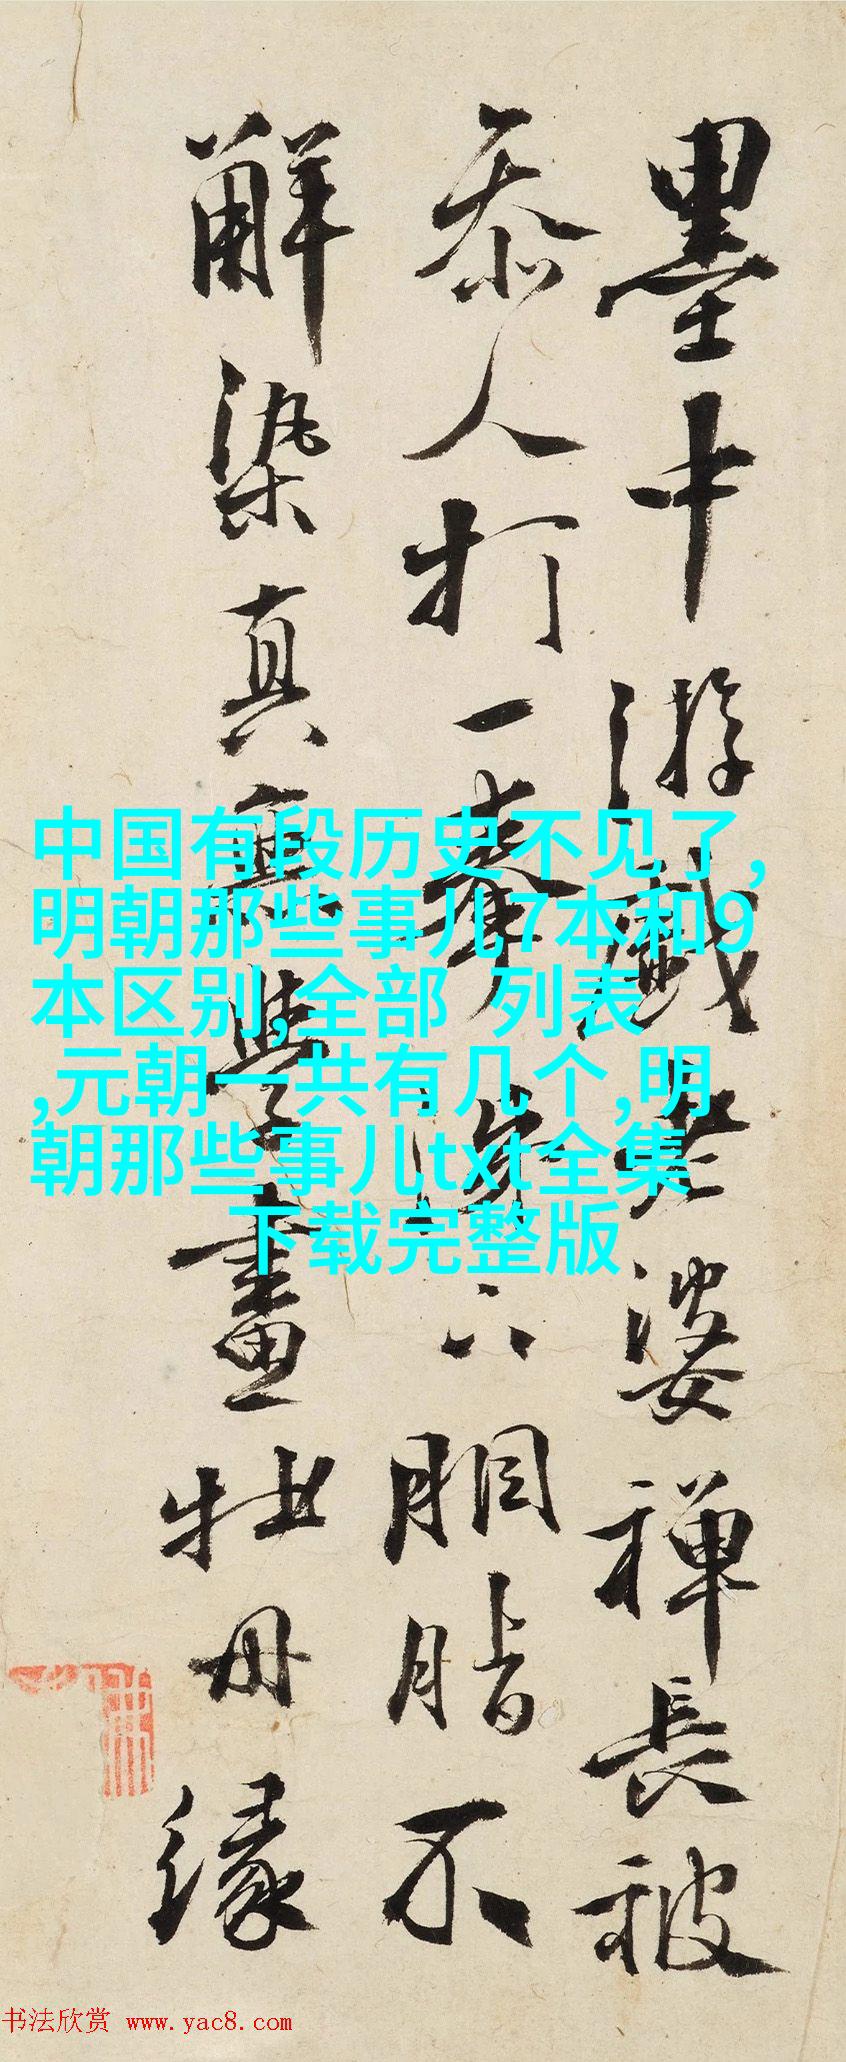 墨中游戲老婆禪長被
忝人打一拳
胭脂不
解染真
學畫牡丹緣
中国有段历史不见了,
明朝那些事儿7本和9
本区别,全部 列表
,元朝一共有几个,明
朝那些事儿txt全集
下载完整版
书法欣赏 www.yac8.com